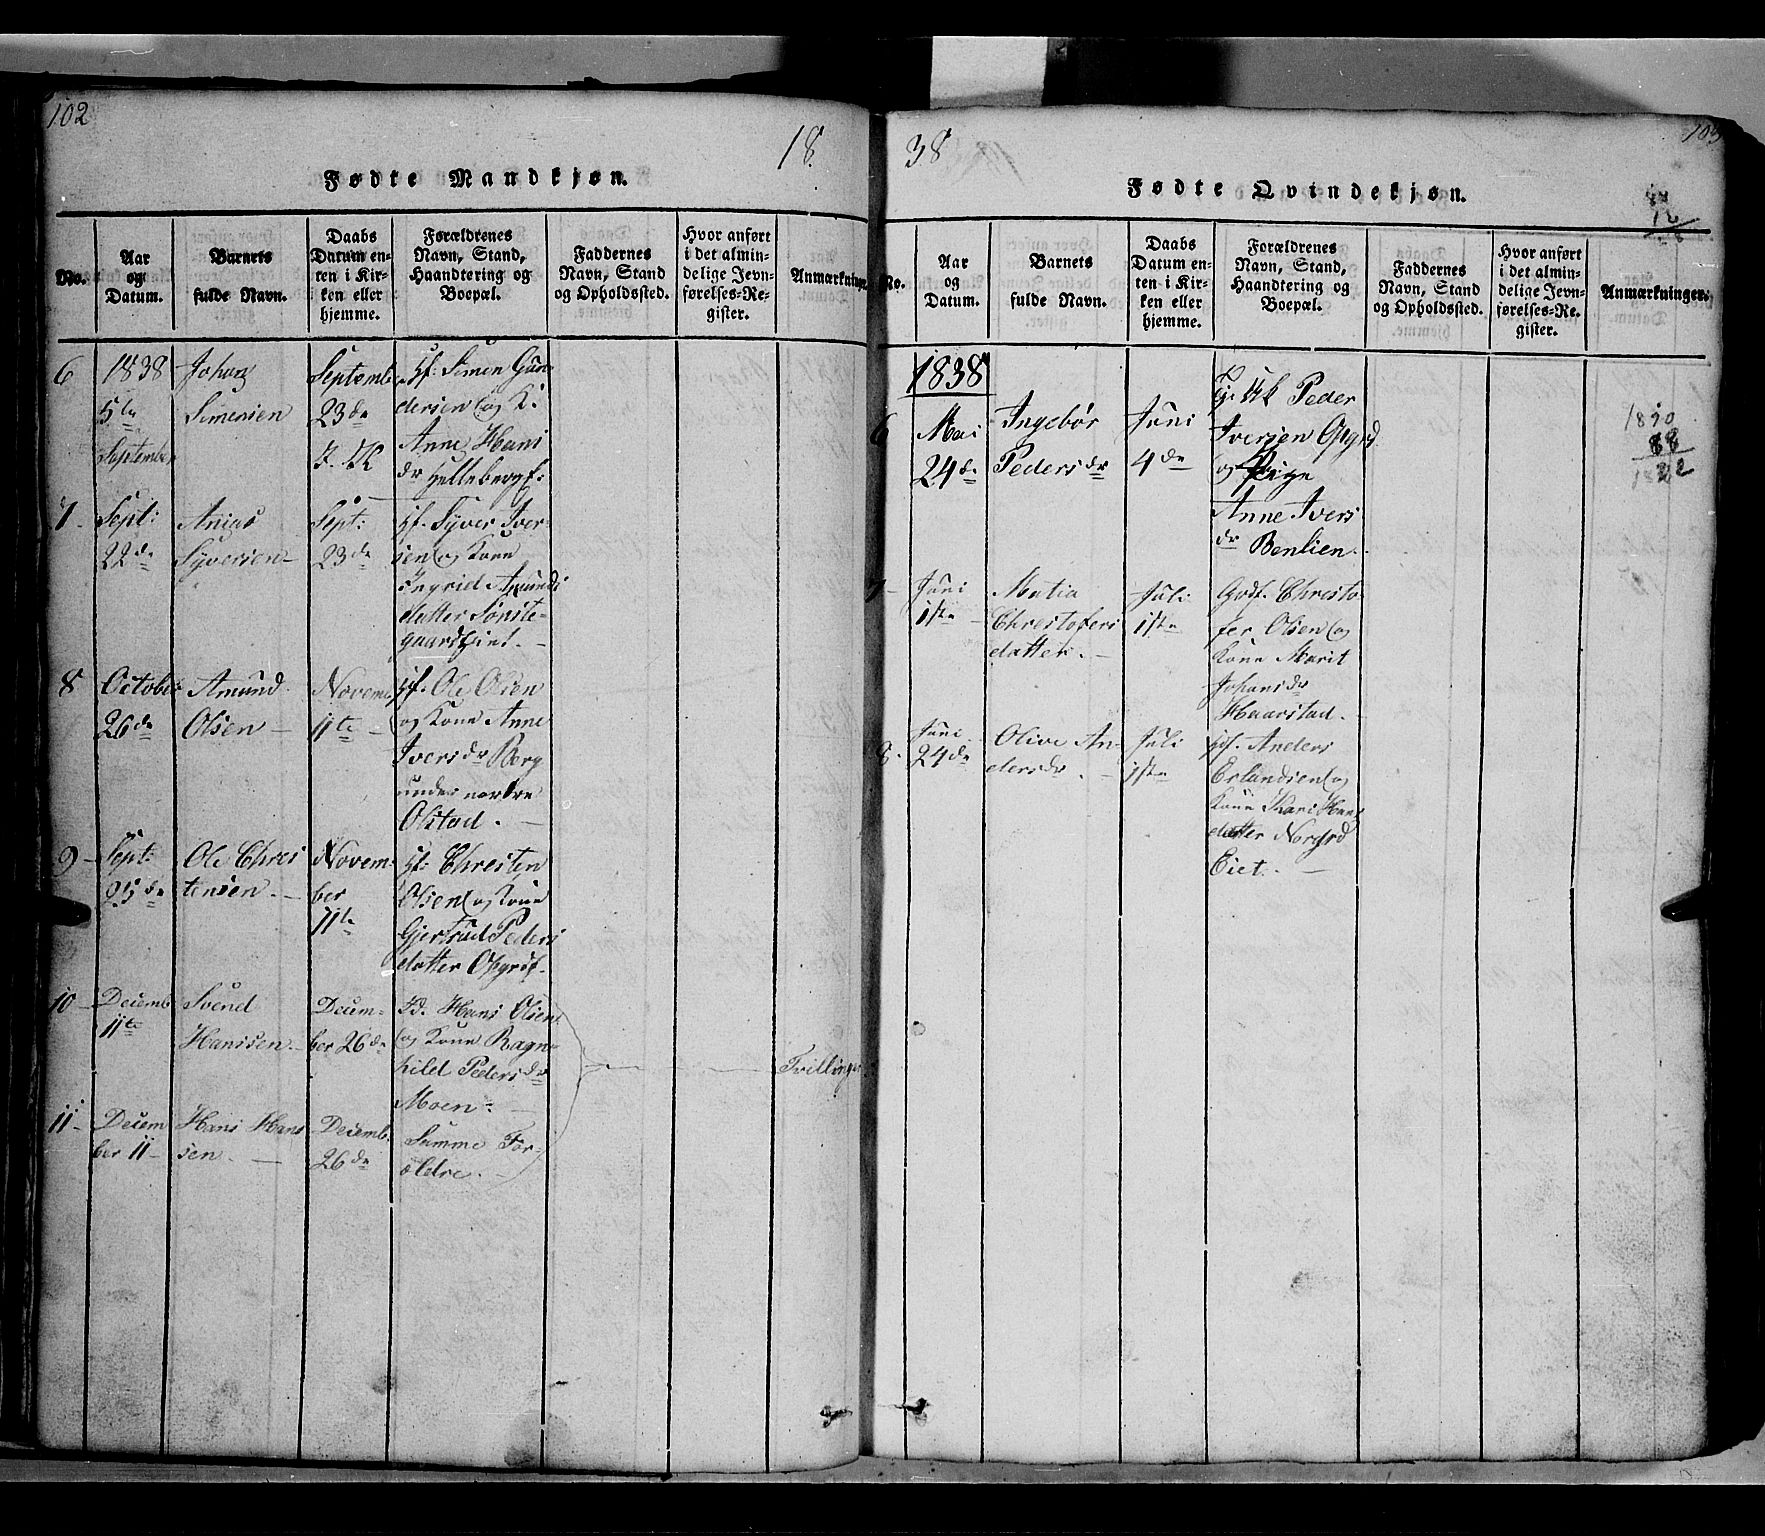 102
18
Fødte Mandkjøn.
No.
Aar
og
Datum.
Barnets
fulde Navn.
Daabs
Datum en-
ten i Kir-
ken eller
hjemme.
Forældrenes
Navn, Stand,
Haandtering og
Boepæl.
Faddernes
Navn, Stand
og Opholdssted.
Hvor anført
i det almin-
delige Jevn-
førelses-Re-
gister.
Anmærkninger
6
1838
5te
September
Johan
Simensen
Septemb
23de
Hf. Simen Gun-
dersen og K.
Anne Hans
dr Hellebergf.
7
Sept:
22de
Anias
Syversen
Sept:
23de
Hf. Syver Iver-
sen og Kone
Ingrid Amunds
datter Sønste-
gaardseiet.
8
October
26de
Amund
Olsen
Novemb
11te
Hf. Ole Olsen
og Kone Anne
Iversdr Berg
under nordre
Olstad.
9
Sept:
25de
Ole Chris
tensen.
Novem-
ber
11te
Hf. Christen
Olsen og Kone
Gjertrud Peders
datter Opgrdf.
10
Decemb
11te
Svend
Hanssen
Decem-
ber 26de
Hans Olsen
og Kone Ragn-
hild Pedersdr
Moen.
Tvillinger
11
Decem
ber 11
Hans Hans
sen.
Decemb.
26de
Samme For-
ældre.
38
103
Fødte Qvindekjøn.
No.
Aar
og
Datum.
Barnets
fulde Navn.
Daabs
Datum en-
ten i Kir-
ken eller
hjemme.
Forældrenes
Navn, Stand,
Haandtering og
Boepæl.
Faddernes
Navn, Stand
og Opholdssted.
Hvor anført
i det almin-
delige Jevn-
førelses-Re-
gister.
Anmærkninger.
12
1838
6
Mai
24de
Ingebør
Pedersdr
Juni
4de
Peder
Iversen Opgrd
og Pige
Anne Ivers
dr Benlien.
1890
68
7
Juni
1ste
Matia
Christofers
datter.
Juli
1ste
Gadf. Christo
fer Olsen og
Kone Marit
Johansdr
Haarstad.
8.
Juni
24de
Olive An-
dersdr.
Juli
1ste
Hf. Anders
Erlandsen og
Kone Kari Hans
datter Norgrd
Eiet.